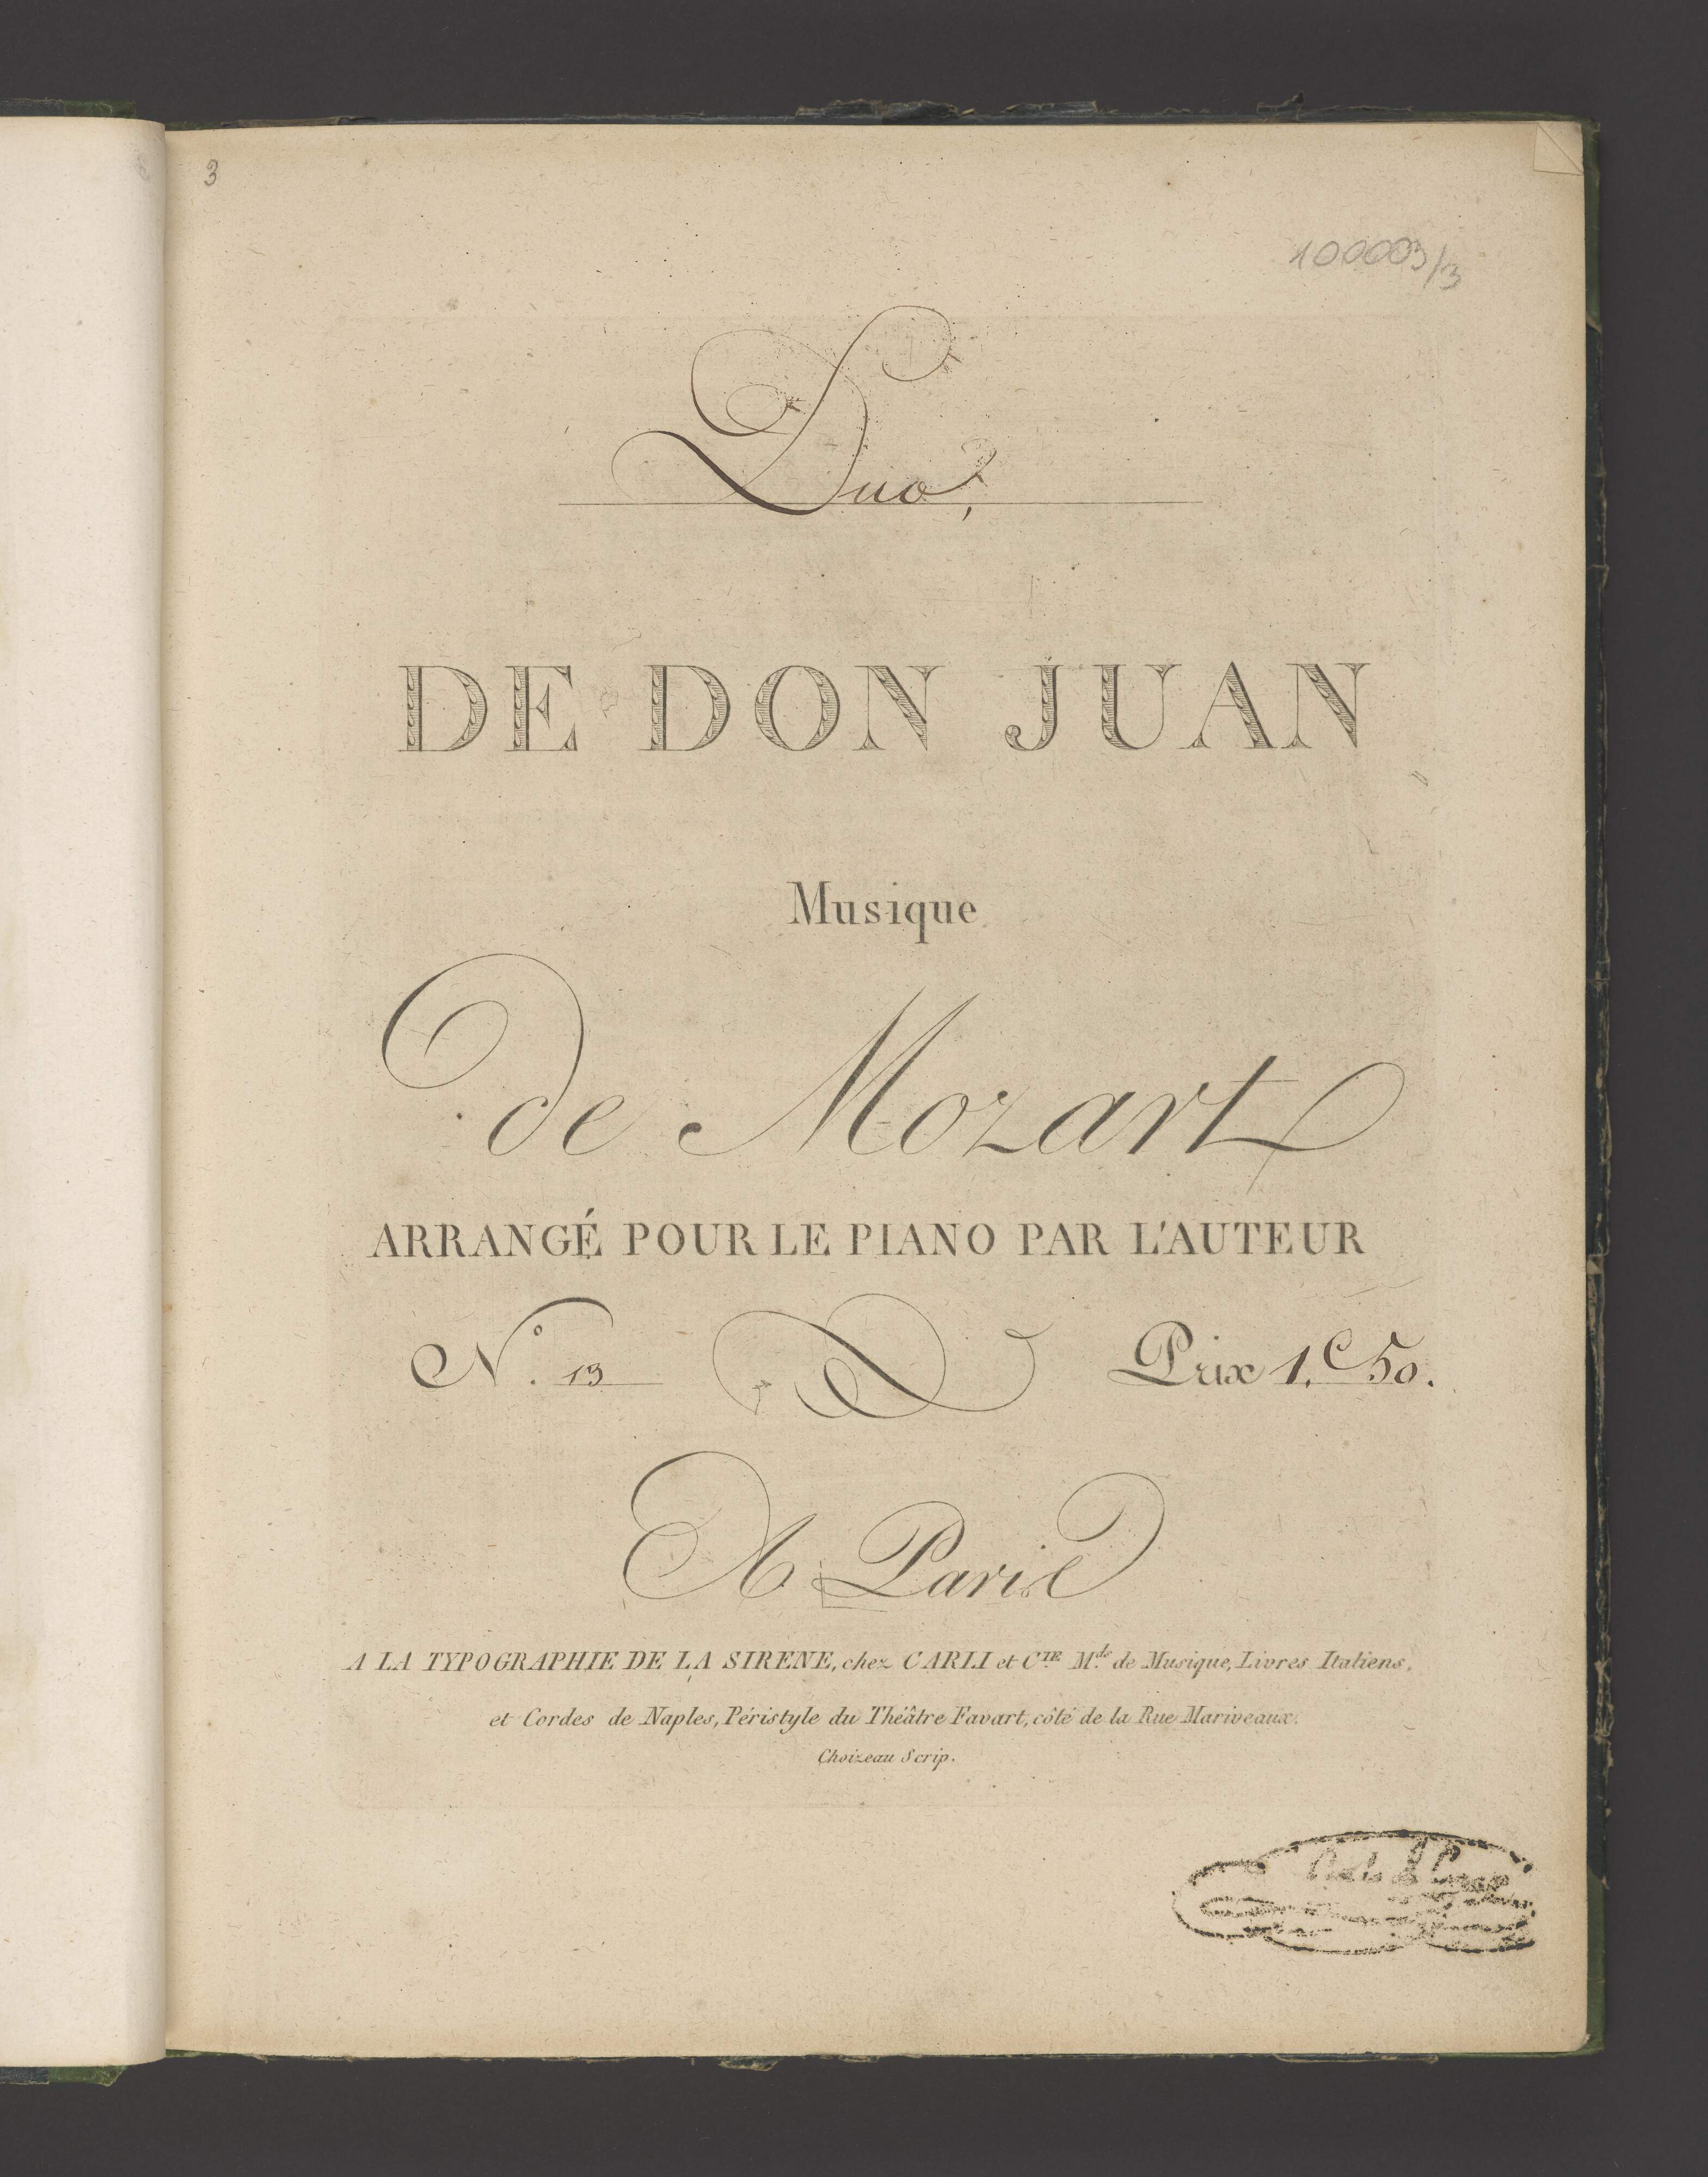 3
100003/3
Duo,
DE DON JUAN
Musique
de Mozart
ARRANGÉ POUR LE PIANO PAR L'AUTEUR
N.° 13 Prix 1.e 50.
A Paris
A LA TYPOGRAPHIE DE LA SIRENE, chez CARLI et C.IE M.ds de Musique, Livres Italiens,
et Cordes de Naples, Péristyle du Théâtre Favart, côté de la Rue Mariveaux.
Choizeau Scrip.